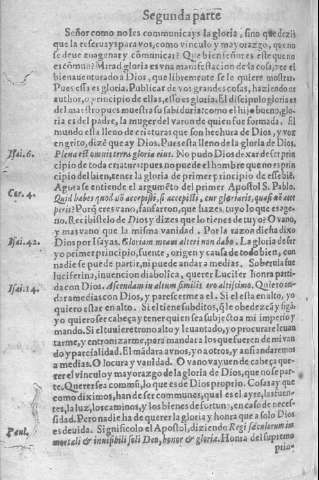 Segunda parte
Señor como no les communicays la gloria, sino que dezis
que la reseruays para vos, como vinculo y mayorazgo, que no
se deue enagenar y cõmunicar? Que bien señor es este que no
es cõmun? Mirad gloria es vna manifestacion de la cosa,
bienauenturado a Dios, que libremente se le quiere mostrar.
Pues essa es gloria. Publicar de vos grandes cosas, haziendo os
author, o principio de ellas, esso es gloria. El discipulo gloria es
del maestro pues muestra su sabiduria: como el hijo bueno, glo-
ria es del padre, la muger del varon de quien fue formada. El
mundo esta lleno de criaturas que son hechura de Dios, y voz
en grito, dizẽ que ay Dios. Pues esta lleno de la gloria de Dios.
Isai. 6.
Plena est omnis terra gloria eius. No pudo Dios dexar de ser prin
cipio de toda criatura: pues no puede el hombre que no es prin
cipio del bien, tener la gloria de primer principio de esse biẽ.
Aqui se entiende el argumẽto del primer Apostol S. Pablo.
Cor. 4.
Quid habes quod nõ accepisti, si accepisti, cur gloriaris, quasi nõ acce
peris? Porq̃ eres vano, fausarron, que hazes tuyo lo que es age-
no. Recibistelo de Dios y dizes que lo tienes de tuyo? O vano,
y mas vano que la misma vanidad. Por la razon dicha dixo
Isai. 42.
Dios por Isayas. Gloriam meam alteri non dabo. La gloria de ser
yo primer principio, fuente, origen y causa de todo bien, con
nadie se puede partir, ni puede andar a medias. Soberuia fue
luciferina, inuencion diabolica, querer Lucifer honra parti-
Isai. 14.
da con Dios. Ascendam in altum similis ero altissimo. Quiero an-
dar a medias con Dios, y parescerme a el. Si el esta en alto, yo
quiero estar en alto. Si el tiene subditos, q̃ le obedezcã y siga
yo quiero ser cabeça y tener quien sea subjecto a mi imperio y
mando. Si el tuuiere trono alto y leuantado, yo procurare leuan
tarme, y entronizarme, para mandar a los que fueren de mi van
do y parcialidad. El mãdara a vnos, yo a otros, y ansi andaremos
a medias. O locura y vanidad. O vano vayuen de cabeça que-
rer el vinculo y mayorazgo de la gloria de Dios, que no se par-
te. Querer sea commũ, lo que es de Dios proprio. Cosas ay que
como diximos, han de ser communes, qual es el ayre, las fuen-
tes, la luz, los caminos, y los bienes de fortuna, en caso de neces-
sidad. Pero nadie ha de querer la gloria y honra que a solo Dios
Paul.
es deuida. Significolo el Apostol, diziendo Regi sæculorum im
mortali & inuisibili soli Deo, honor & gloria. Honra del supremo
prin-